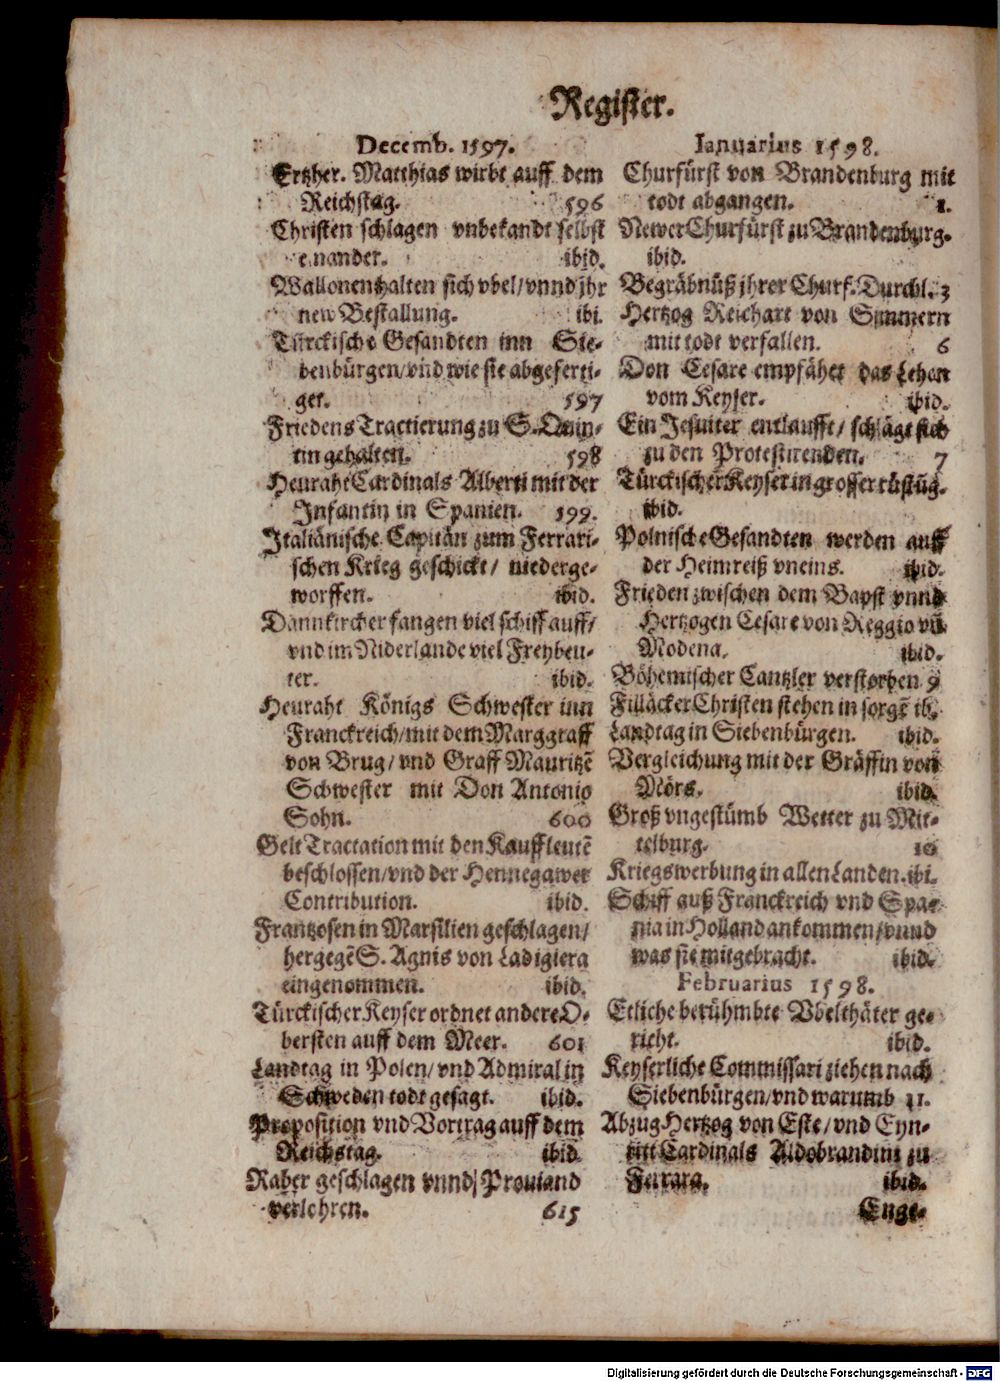 Register.
Decemb. 1597.
Ertzher. Matthias wirbt auff dem
Reichstag. 596
Christen schlagen vnbekandt selbst
einander. ibid.
Wallonen halten sich vbel/ vnnd jhr
new Bestallung. ibi.
Türckische Gesandten inn Sie-
benbürgen/ vnd wie sie abgeferti-
get. 597
Friedens Tractierung zu S. Quin-
tin gehalten. 598
Heuraht Cardinals Alberti mit der
Infantin in Spanien. 599.
Italiänische Capitän zum Ferrari-
schen Krieg geschickt/ niederge-
worffen. ibid.
Dännkircher fangen viel schiff auff/
vnd im Niderlande viel Freybeu-
ter. ibid.
Heuraht Königs Schwester inn
Franckreich/ mit dem Marggraff
von Brug/ vnd Graff Mauritzẽ
Schwester mit Don Antonio
Sohn. 600
Gelt Tractation mit den Kauffleutẽ
beschlossen/ vnd der Hennegawer
Contribution. ibid.
Frantzosen in Marsilien geschlagen/
hergegẽ S. Agnis von Ladigiera
eingenommen. ibid.
Türckischer Keyser ordnet andere O-
bersten auff dem Meer. 601
Landtag in Polen/ vnd Admiral in
Schweden todt gesagt. ibid.
Proposition vnd Vortrag auff dem
Reichstag. ibid
Raber geschlagen vnnd Prouiand
verlehren. 615
Ianuarius 1598.
Churfürst von Brandenburg mit
todt abgangen. 1.
Newer Churfürst zu Brandenburg.
ibid.
Begräbnüß jhrer Churf. Durchl. 3
Hertzog Reichart von Simmern
mit todt verfallen. 6
Don Cesare empfähet das Lehen
vom Keyser. ibid.
Ein Jesuiter entlaufft/ schlägt sich
zu den Protestirenden. 7
Türckischer Keyser in grosser rüstũg.
ibid.
Polnische Gesandten werden auff
der Heimreiß vneins. ibid.
Frieden zwischen dem Bapst vnnd
Hertzogen Cesare von Reggio vñ
Modena. ibid.
Böhemischer Cantzler verstorben 9
Filläcker Christen stehen in sorgẽ ib.
Landtag in Siebenbürgen. ibid.
Vergleichung mit der Gräffin von
Mörs. ibid.
Groß vngestümb Wetter zu Mit-
telburg. 10
Kriegswerbung in allen Landen. ibi.
Schiff auß Franckreich vnd Spa-
nia in Holland ankommen/ vnnd
was sie mitgebracht. ibid.
Februarius 1598.
Etliche berühmbte Vbelthäter ge-
richt. ibid.
Keyserliche Commissari ziehen nach
Siebenbürgen/ vnd warumb 11.
Abzug Hertzog von Este/ vnd Eyn-
ritt Cardinals Aldobrandini zu
Ferrara. ibid.
Enge-
Digitalisierung gefördert durch die Deutsche Forschungsgemeinschaft - DFG